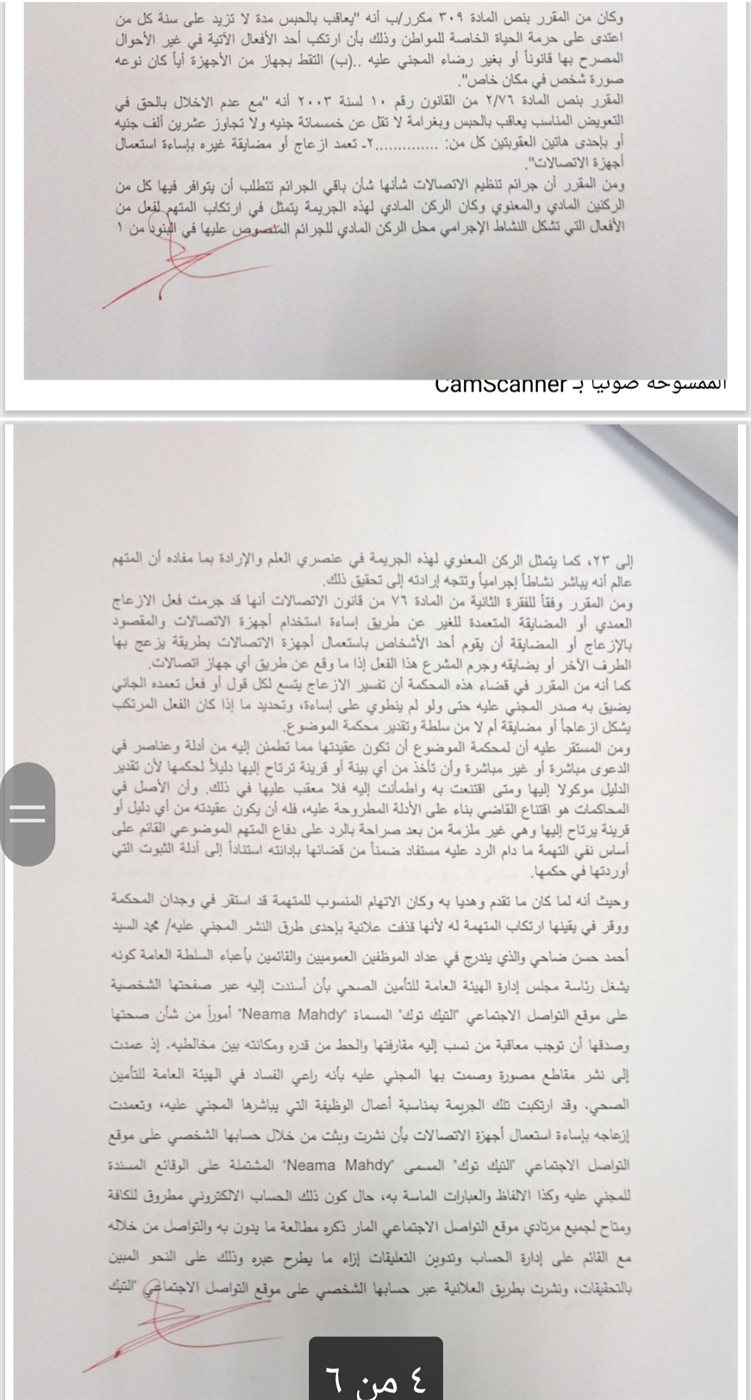 وكان من المقرر بنص المادة ٣٠٩ مكرر/ب أنه "يعاقب بالحبس مدة لا تزيد على سنة كل من
اعتدى على حرمة الحياة الخاصة للمواطن وذلك بأن ارتكب أحد الأفعال الآتية في غير الأحوال
المصرح بها قانوناً أو بغير رضاء المجني عليه ..(ب) التقط بجهاز من الأجهزة أياً كان نوعه
صورة شخص في مكان خاص".
المقرر بنص المادة ٢/٧٦ من القانون رقم ١٠ لسنة ٢٠٠٣ أنه "مع عدم الاخلال بالحق في
التعويض المناسب يعاقب بالحبس وبغرامة لا تقل عن خمسمائة جنيه ولا تجاوز عشرين ألف جنيه
أو بإحدى هاتين العقوبتين كل من: ..............٢ـ تعمد ازعاج أو مضايقة غيره بإساءة استعمال
أجهزة الاتصالات".
ومن المقرر أن جرائم تنظيم الاتصالات شأنها شأن باقي الجرائم تتطلب أن يتوافر فيها كل من
الركنين المادي والمعنوي وكان الركن المادي لهذه الجريمة يتمثل في ارتكاب المتهم لفعل من
الأفعال التي تشكل النشاط الإجرامي محل الركن المادي للجرائم المنصوص عليها في البنود من ١
الممسوحة ضوئيا بـ CamScanner
إلى ٢٣، كما يتمثل الركن المعنوي لهذه الجريمة في عنصري العلم والإرادة بما مفاده أن المتهم
عالم أنه يباشر نشاطاً إجرامياً وتتجه إرادته إلى تحقيق ذلك.
ومن المقرر وفقاً للفقرة الثانية من المادة ٧٦ من قانون الاتصالات أنها قد جرمت فعل الازعاج
العمدي أو المضايقة المتعمدة للغير عن طريق إساءة استخدام أجهزة الاتصالات والمقصود
بالإزعاج أو المضايقة أن يقوم أحد الأشخاص باستعمال أجهزة الاتصالات بطريقة يزعج بها
الطرف الآخر أو يضايقه وجرم المشرع هذا الفعل إذا ما وقع عن طريق أي جهاز اتصالات.
كما أنه من المقرر في قضاء هذه المحكمة أن تفسير الازعاج يتسع لكل قول أو فعل تعمده الجاني
يضيق به صدر المجني عليه حتى ولو لم ينطوي على إساءة، وتحديد ما إذا كان الفعل المرتكب
يشكل ازعاجاً أو مضايقة أم لا من سلطة وتقدير محكمة الموضوع.
ومن المستقر عليه أن لمحكمة الموضوع أن تكون عقيدتها مما تطمئن إليه من أدلة وعناصر في
الدعوى مباشرة أو غير مباشرة وأن تأخذ من أي بينة أو قرينة ترتاح إليها دليلاً لحكمها لأن تقدير
الدليل موكولا إليها ومتى اقتنعت به واطمأنت إليه فلا معقب عليها في ذلك. وأن الأصل في
المحاكمات هو اقتناع القاضي بناء على الأدلة المطروحة عليه، فله أن يكون عقيدته من أي دليل أو
قرينة يرتاح إليها وهي غير ملزمة من بعد صراحة بالرد على دفاع المتهم الموضوعي القائم على
أساس نفي التهمة ما دام الرد عليه مستفاد ضمناً من قضائها بإدانته استناداً إلى أدلة الثبوت التي
أوردتها في حكمها.
وحيث أنه لما كان ما تقدم وهديا به وكان الاتهام المنسوب للمتهمة قد استقر في وجدان المحكمة
ووقر في يقينها ارتكاب المتهمة له لأنها قذفت علانية بإحدى طرق النشر المجني عليه/ محمد السيد
أحمد حسن ضاحي والذي يندرج في عداد الموظفين العموميين والقائمين بأعباء السلطة العامة كونه
يشغل رئاسة مجلس إدارة الهيئة العامة للتأمين الصحي بأن أسندت إليه عبر صفحتها الشخصية
على موقع التواصل الاجتماعي "التيك توك" المسماة "Neama Mahdy" أموراً من شأن صحتها
وصدقها أن توجب معاقبة من نسب إليه مقارفتها والحط من قدره ومكانته بين مخالطيه. إذ عمدت
إلى نشر مقاطع مصورة وصمت بها المجني عليه بأنه راعي الفساد في الهيئة العامة للتأمين
الصحي. وقد ارتكبت تلك الجريمة بمناسبة أعمال الوظيفة التي يباشرها المجني عليه، وتعمدت
إزعاجه بإساءة استعمال أجهزة الاتصالات بأن نشرت وبثت من خلال حسابها الشخصي على موقع
التواصل الاجتماعي "التيك توك" المسمى "Neama Mahdy" المشتملة على الوقائع المسندة
للمجني عليه وكذا الالفاظ والعبارات الماسة به، حال كون ذلك الحساب الالكتروني مطروق للكافة
ومتاح لجميع مرتادي موقع التواصل الاجتماعي المار ذكره مطالعة ما يدون به والتواصل من خلاله
مع القائم على إدارة الحساب وتدوين التعليقات إزاء ما يطرح عبره وذلك على النحو المبين
بالتحقيقات، ونشرت بطريق العلانية عبر حسابها الشخصي على موقع التواصل الاجتماعي "التيك
٤ من ٦